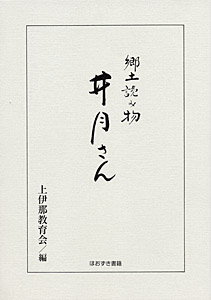 郷土読み物
井月さん
上伊那教育会／編
ほおずき書籍